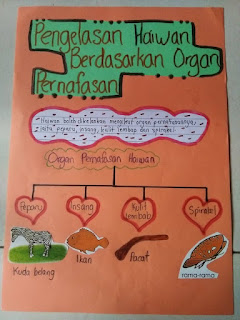 Pengelasan Haiwan
Berdasarkan Organ
Pernafasan
Haiwan boleh dikelaskan mengikut organ pernafasannya,
iaitu peparu, insang, kulit lembap dan spirakel.
Organ Pernafasan Haiwan
Peparu
Insang
Kulit
lembab
Spirakel
Kuda belang
Ikan
Pacat
rama-rama